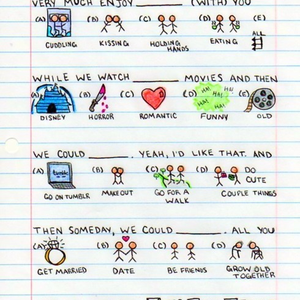 VERY MUCH ENJOY ______ (WITH) YOU
(A) (B) (C) (D) (E)
CUDDLING KISSING HOLDING HANDS EATING ALL
WHILE WE WATCH ______ MOVIES AND THEN
(A) (B) (C) (D) HA! HA! HA! HA! (E)
DISNEY HORROR ROMANTIC FUNNY OLD
WE COULD ______. YEAH, I'D LIKE THAT. AND
(A) tumblr. (B) (C) (D) DO CUTE
GO ON TUMBLR MAKE OUT GO FOR A WALK COUPLE THINGS
THEN SOMEDAY, WE COULD ______. ALL YOU
(A) (B) (C) (D)
GET MARRIED DATE BE FRIENDS GROW OLD TOGETHER